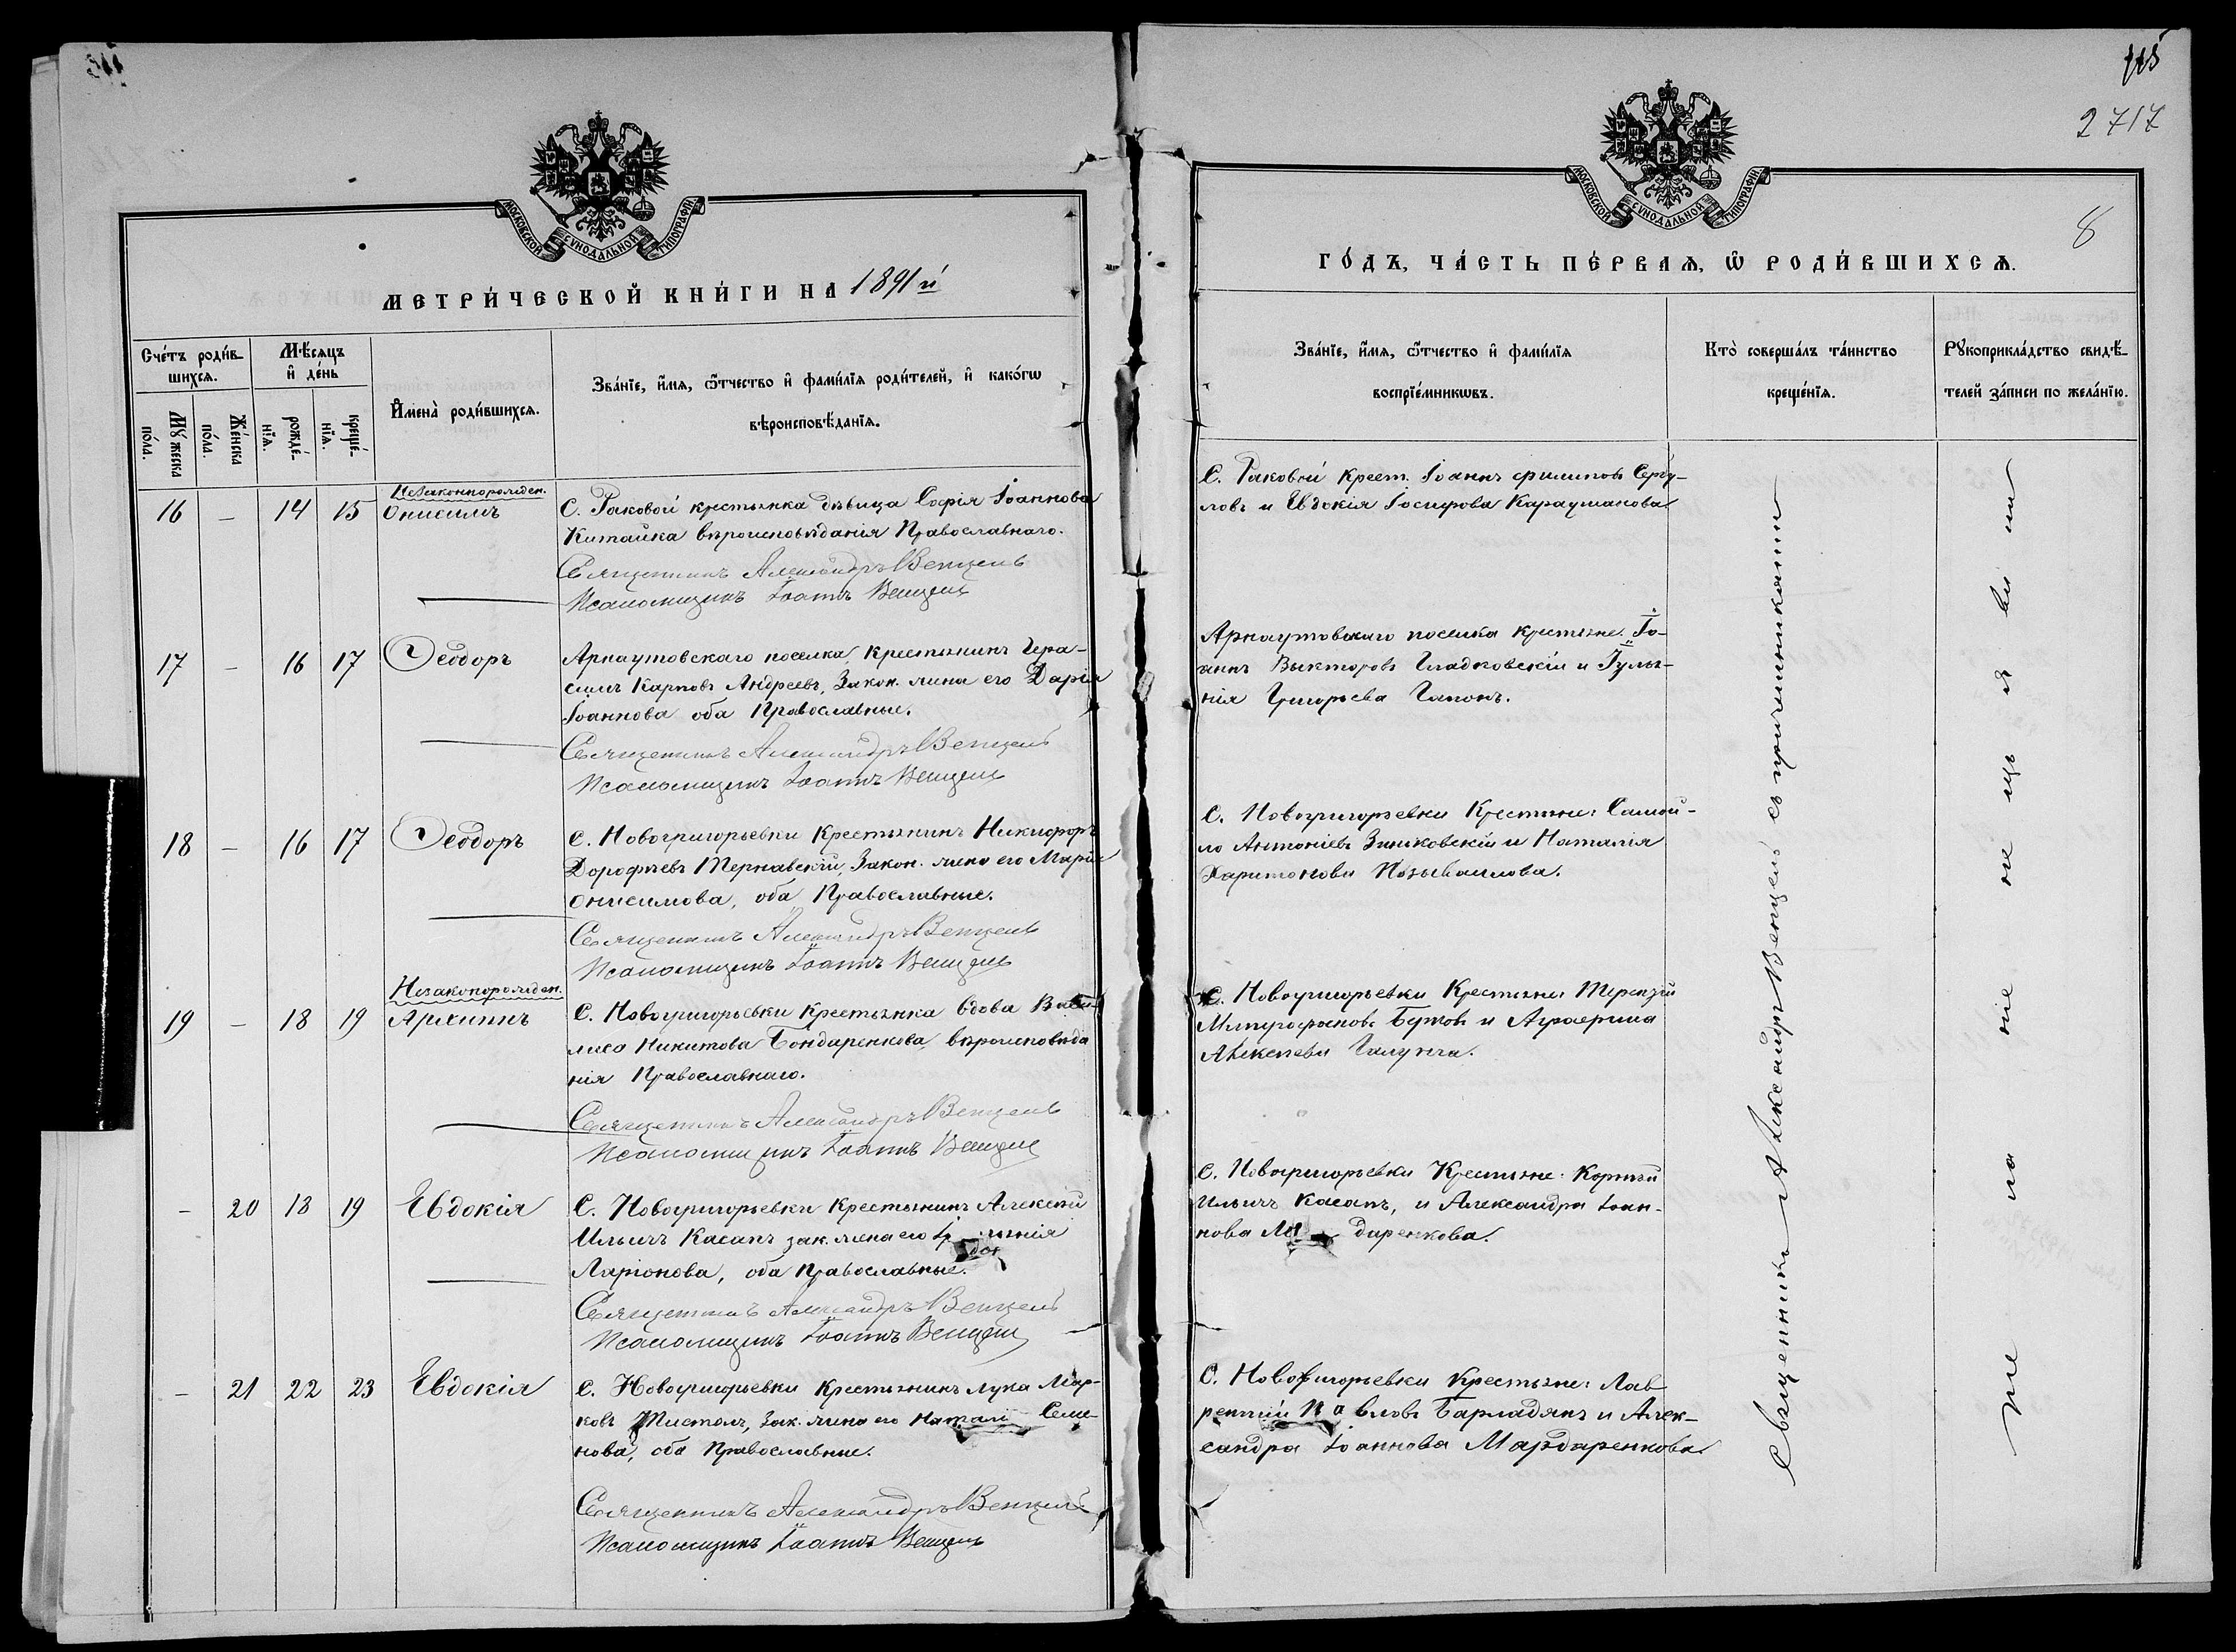 115
2717
8
МОСКОВСКОЙ СѴНОДАЛЬНОЙ ТИПОГРАФІИ
МЕТРИ́ЧЕСКОЙ КНИ́ГИ НА 1891й
Сче́тъ роди́в-
шихся.
Мѣ́сяцъ
и҆ де́нь
Мꙋ́жеска
по́ла.
Же́нска
по́ла.
рожде́-
нїя.
креще́-
нїя.
И҆мена̀ роди́вшихся.
Зва́нїе, и҆́мя, ѻ҆́тчество и҆ фами́лїя роди́телей, и҆ како́гѡ
вѣроисповѣ́данїя.
Незаконнорожден.
16 – 14 15 Онисимъ С. Раковой крестьянка дѣвица Софія Іоаннова
Китайка вѣроисповѣданія Православнаго.
Священникъ Александръ Венцель
Псаломщикъ Іоаннъ Венцель
17 – 16 17 Ѳеодоръ Арнаутовскаго поселка, крестьянинъ Гера-
симъ Карповъ Андреевъ, Закон. жена его Дарія
Іоаннова оба Православные.
Священникъ Александръ Венцель
Псаломщикъ Іоаннъ Венцель
18 – 16 17 Ѳеодоръ С. Новогригорьевки Крестьянинъ Никифоръ
Дорофѣевъ Тернавскій, Закон. жена его Марія
Онисимова, оба Православные.
Священникъ Александръ Венцель
Псаломщикъ Іоаннъ Венцель
Незаконорожден.
19 – 18 19 Архиппъ С. Новогригорьевки Крестьянка вдова Васи-
лиса Никитова Бондаренкова, вѣроисповѣда
нія Православнаго.
Священникъ Александръ Венцель
Псаломщикъ Іоаннъ Венцель
– 20 18 19 Евдокія С. Новогригорьевки Крестьянинъ Алексѣй
Ильичъ Касапъ зак. жена его
Ларіонова, оба Православные.
Священникъ Александръ Венцель
Псаломщикъ Іоаннъ Венцель
– 21 22 23 Евдокія С. Новогригорьевки Крестьянинъ Лука Мар-
ковъ Шистолъ, Зак. жена его Натали Семе-
нова, оба Православные.
Священникъ Александръ Венцель
Псаломщикъ Іоаннъ Венцель
МОСКОВСКОЙ СѴНОДАЛЬНОЙ ТИПОГРАФІИ
ГО́ДЪ, ЧА́СТЬ ПЕ́РВАЯ, Ѽ РОДИ́ВШИХСЯ.
Зва́нїе, и҆́мя, ѻ҆́тчество и҆ фами́лїя
воспрїе́мникѡвъ.
Кто̀ соверша́лъ та́инство
креще́нїя.
Рꙋкоприкла́дство свидѣ́-
телей за́писи по жела́нїю.
С. Раковой Крест. Іоаннъ Филиповъ Сербу-
ловъ и Евдокія Іосифова Караушанова
Арнаутовскаго поселка крестьяне: Іо-
аннъ Выкторовъ Гладковскій и Іулы-
нія Григорьева Гапонъ.
С. Новогригорьевки Крестьяне: Самой-
ло Антоніевъ Зинковскій и Наталія
Харитонова Позываилова.
С. Новогригорьевки Крестьяне: Терентій
Митрофановъ Бутовъ и Агрипина
Алексѣева Галунга.
С. Новогригорьевки Крестьяне: Корнѣй
Ильичъ Касапъ, и Александра Іоан-
нова даренкова.
С. Новогригорьевки Крестьяне: Лав
рентій Павловъ Барладянъ и Алек-
сандра Іоаннова Мардаренкова
Священникъ Александръ Венцель съ причетниками
не я ви ли